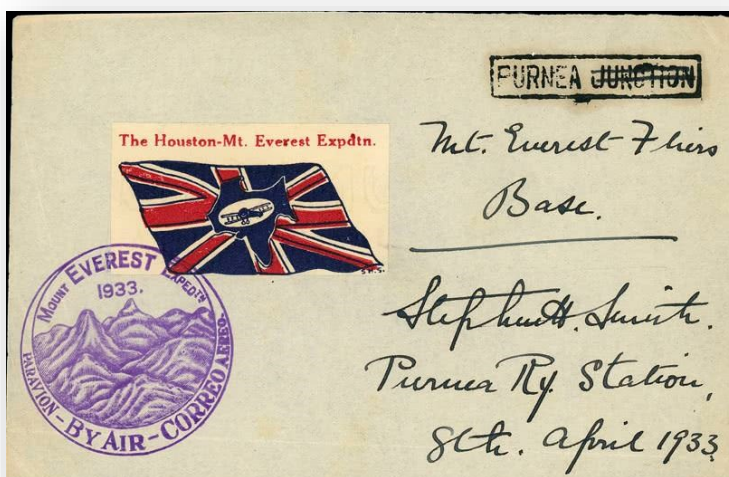 PURNEA JUNCTION
The Houston-Mt. Everest Expdtn.
S.H.S.
Mt. Everest Fliers
Base.
MOUNT EVEREST EXPEDTN
1933.
PARAVION - BY AIR - CORREO AEREO.
Stephen H. Smith.
Purnea Ry. Station,
8th. April 1933